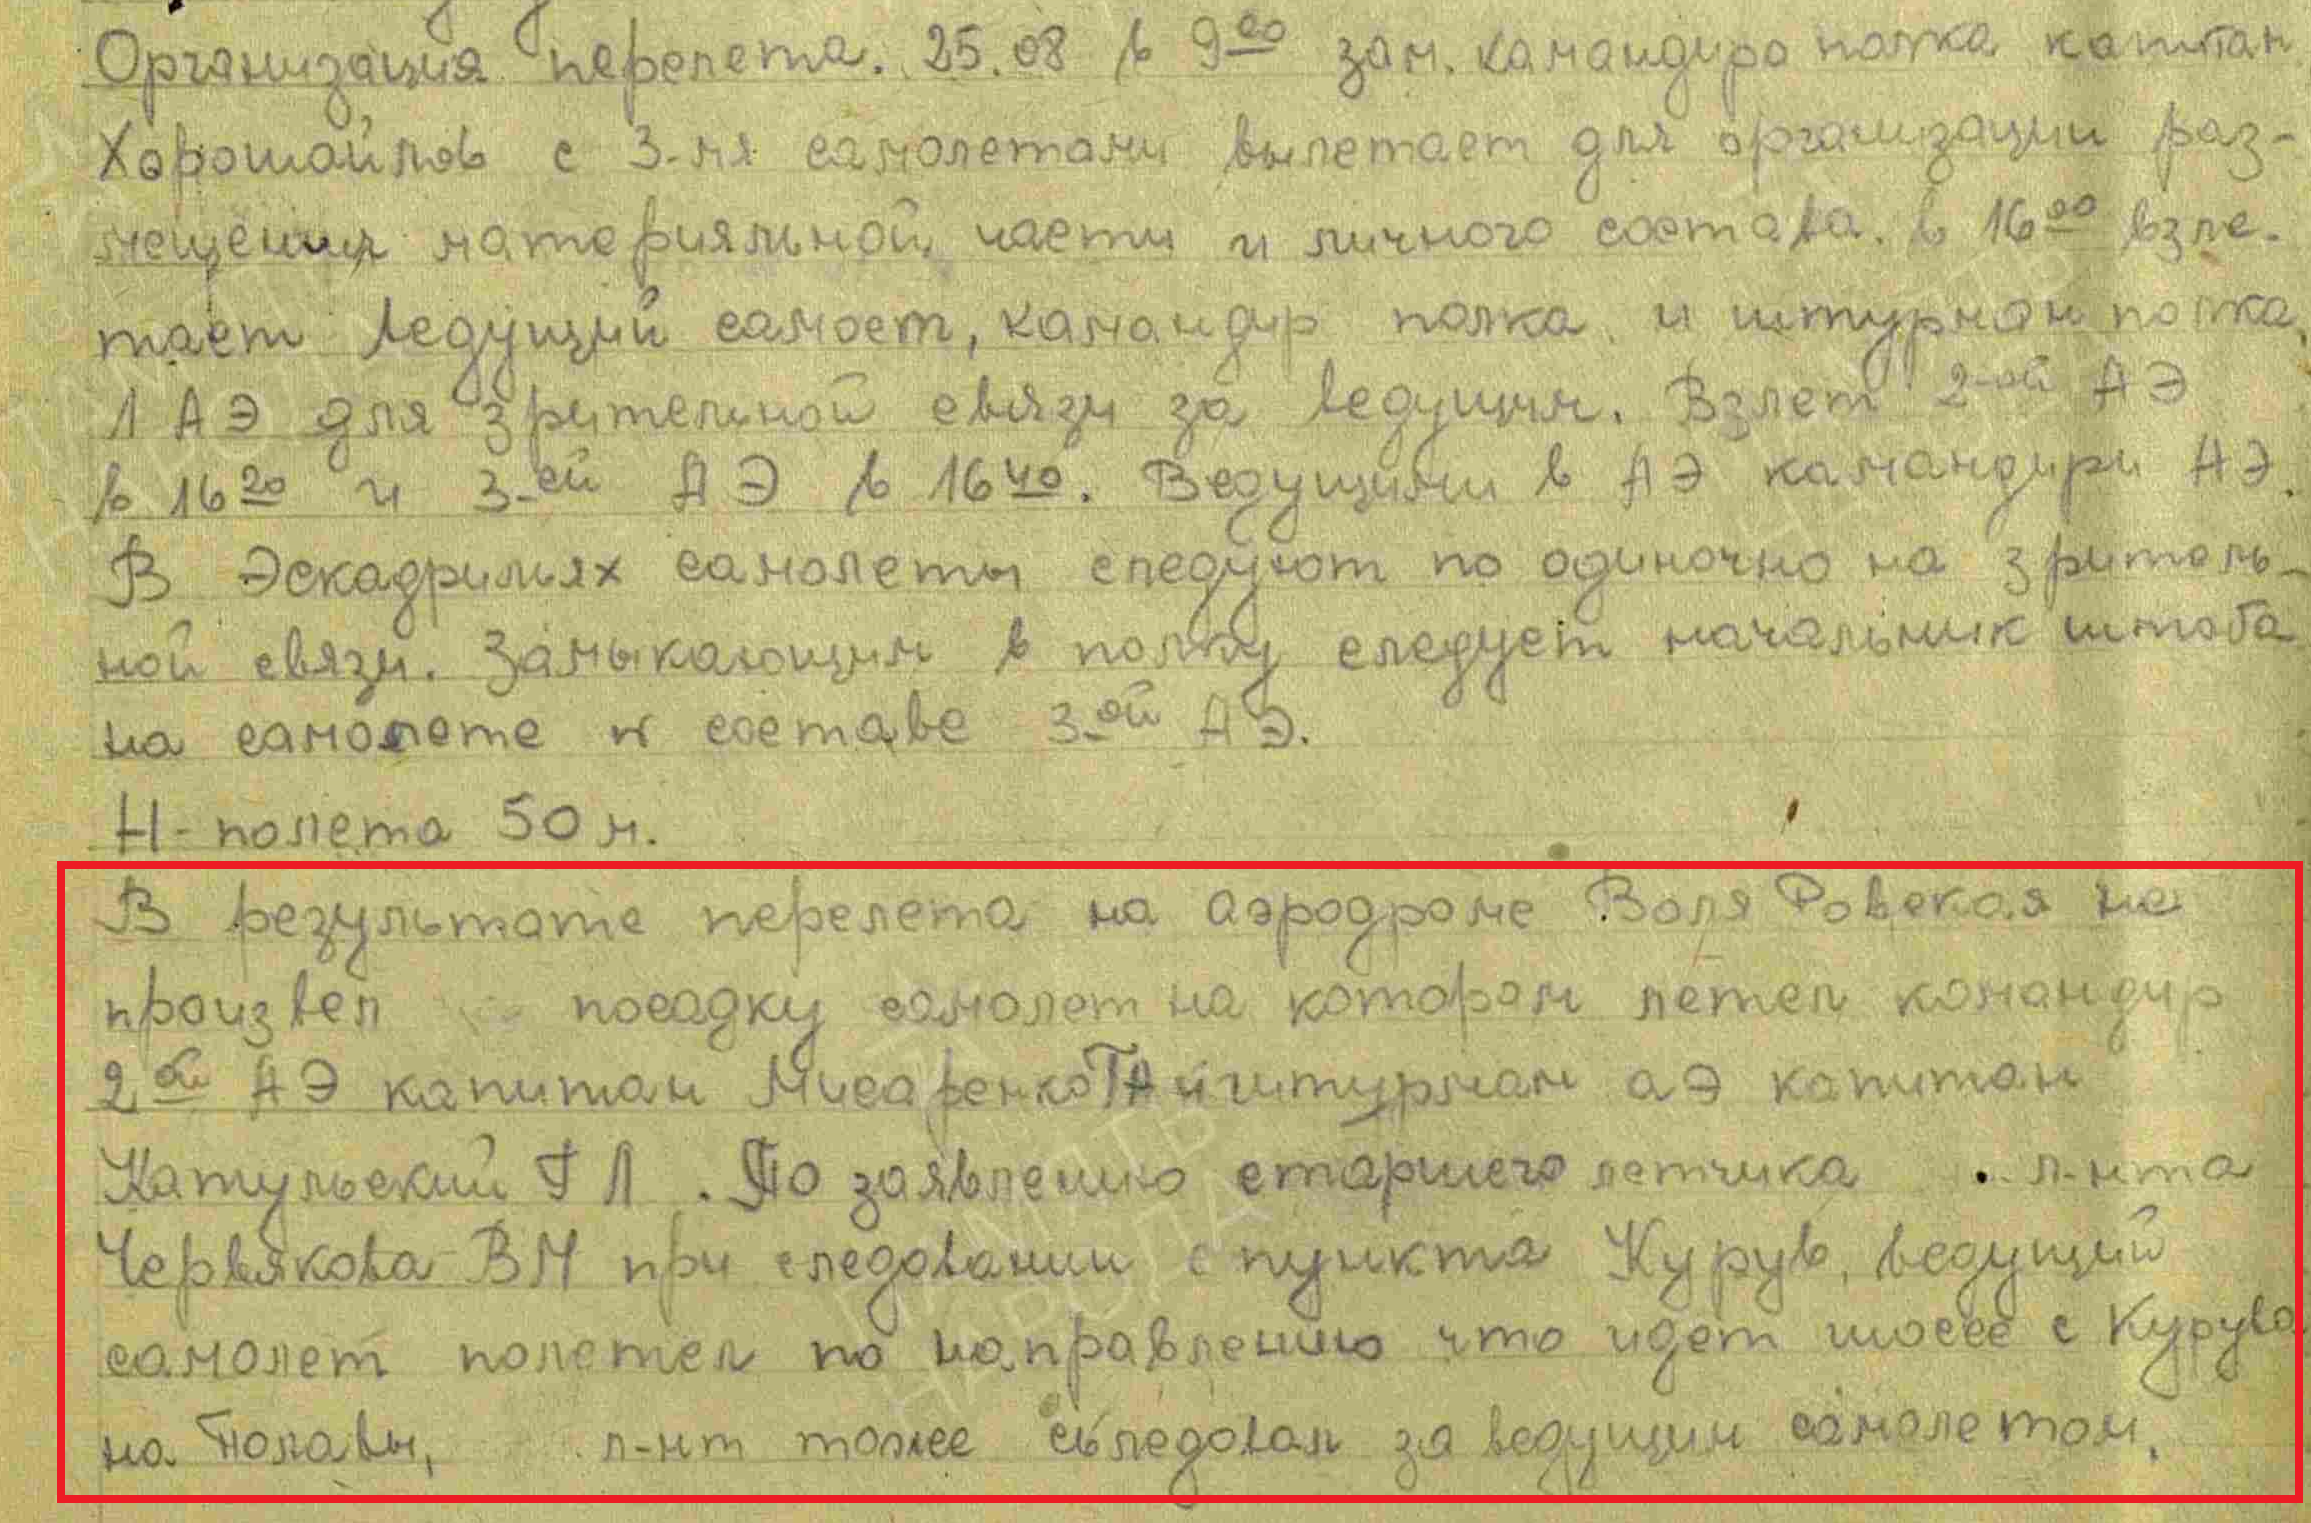 Организация перелета. 25.08 в 9 00 зам. командира полка капитан
Хорошайлов с 3-мя самолетами вылетает для организации раз-
мещения материяльной части и личного состава. в 16 00 взле-
тает ведущий самоет, командир полка и штурман полка,
1 АЭ для зрительной связи за ведущим. Взлет 2-ой АЭ
в 16 20 и 3-ей АЭ в 16 40. Ведущими в АЭ командири АЭ.
В Эскадрильях самолеты следуют по одиночно на зритель-
ной связи. Замыкающим в полку следует начальник штаба
на самолете в составе 3-ой АЭ.
Н- полета 50 м.
В результате перелета на аэродроме Воля Ровская не
произвел посадку самолет на котором летел командир
2 ой АЭ капитан Мисаренко ГА и штурман аЭ капитан
Катульский Г Л. По заявлению старшего летчика л-нта
Червякова ВМ при следовании с пункта Курув, ведущий
самолет полетел по направлению что идет шоссе с Курува
на Полавы, л-нт тоже следовал за ведущим самолетом.
ПАМЯТЬ
НАРОДА